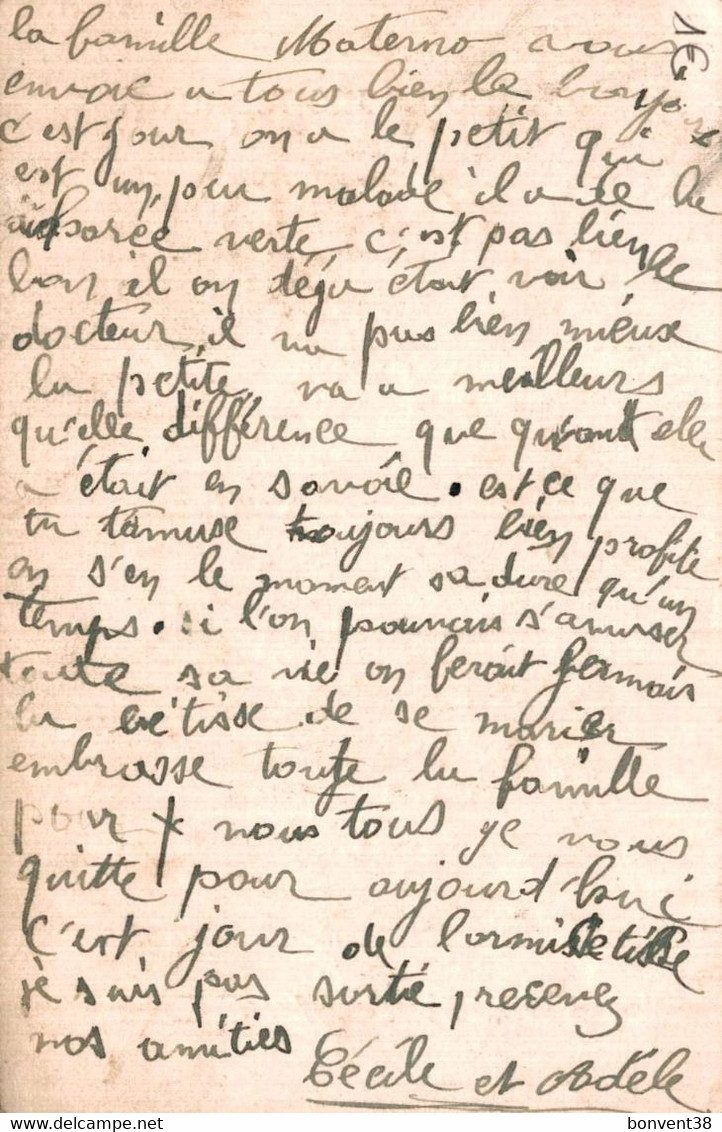 1€
la famille Materno vous
envoie a tous bien le bonjour
c'est jour on a le petit qui
est un peu malade il a de la
verte, c'est pas bien
bon il on déja était voir le
docteur, il va pas bien mieux
la petite va a meilleurs
qu'elle différence que quant elle
a était en savoie. est ce que
tu tamuse toujours bien profite
on s'en le moment sa dure qu'un
temps. si l'on pouvais s'amuser
toute sa vie on ferait jermais
la bétisse de se marier
embrasse toute la famille
pour nous tous je vous
quitte pour aujourd'hui
c'est jour de
je suis pas sortie, recevez
nos amities
Cécile et Adèle
bonvent38